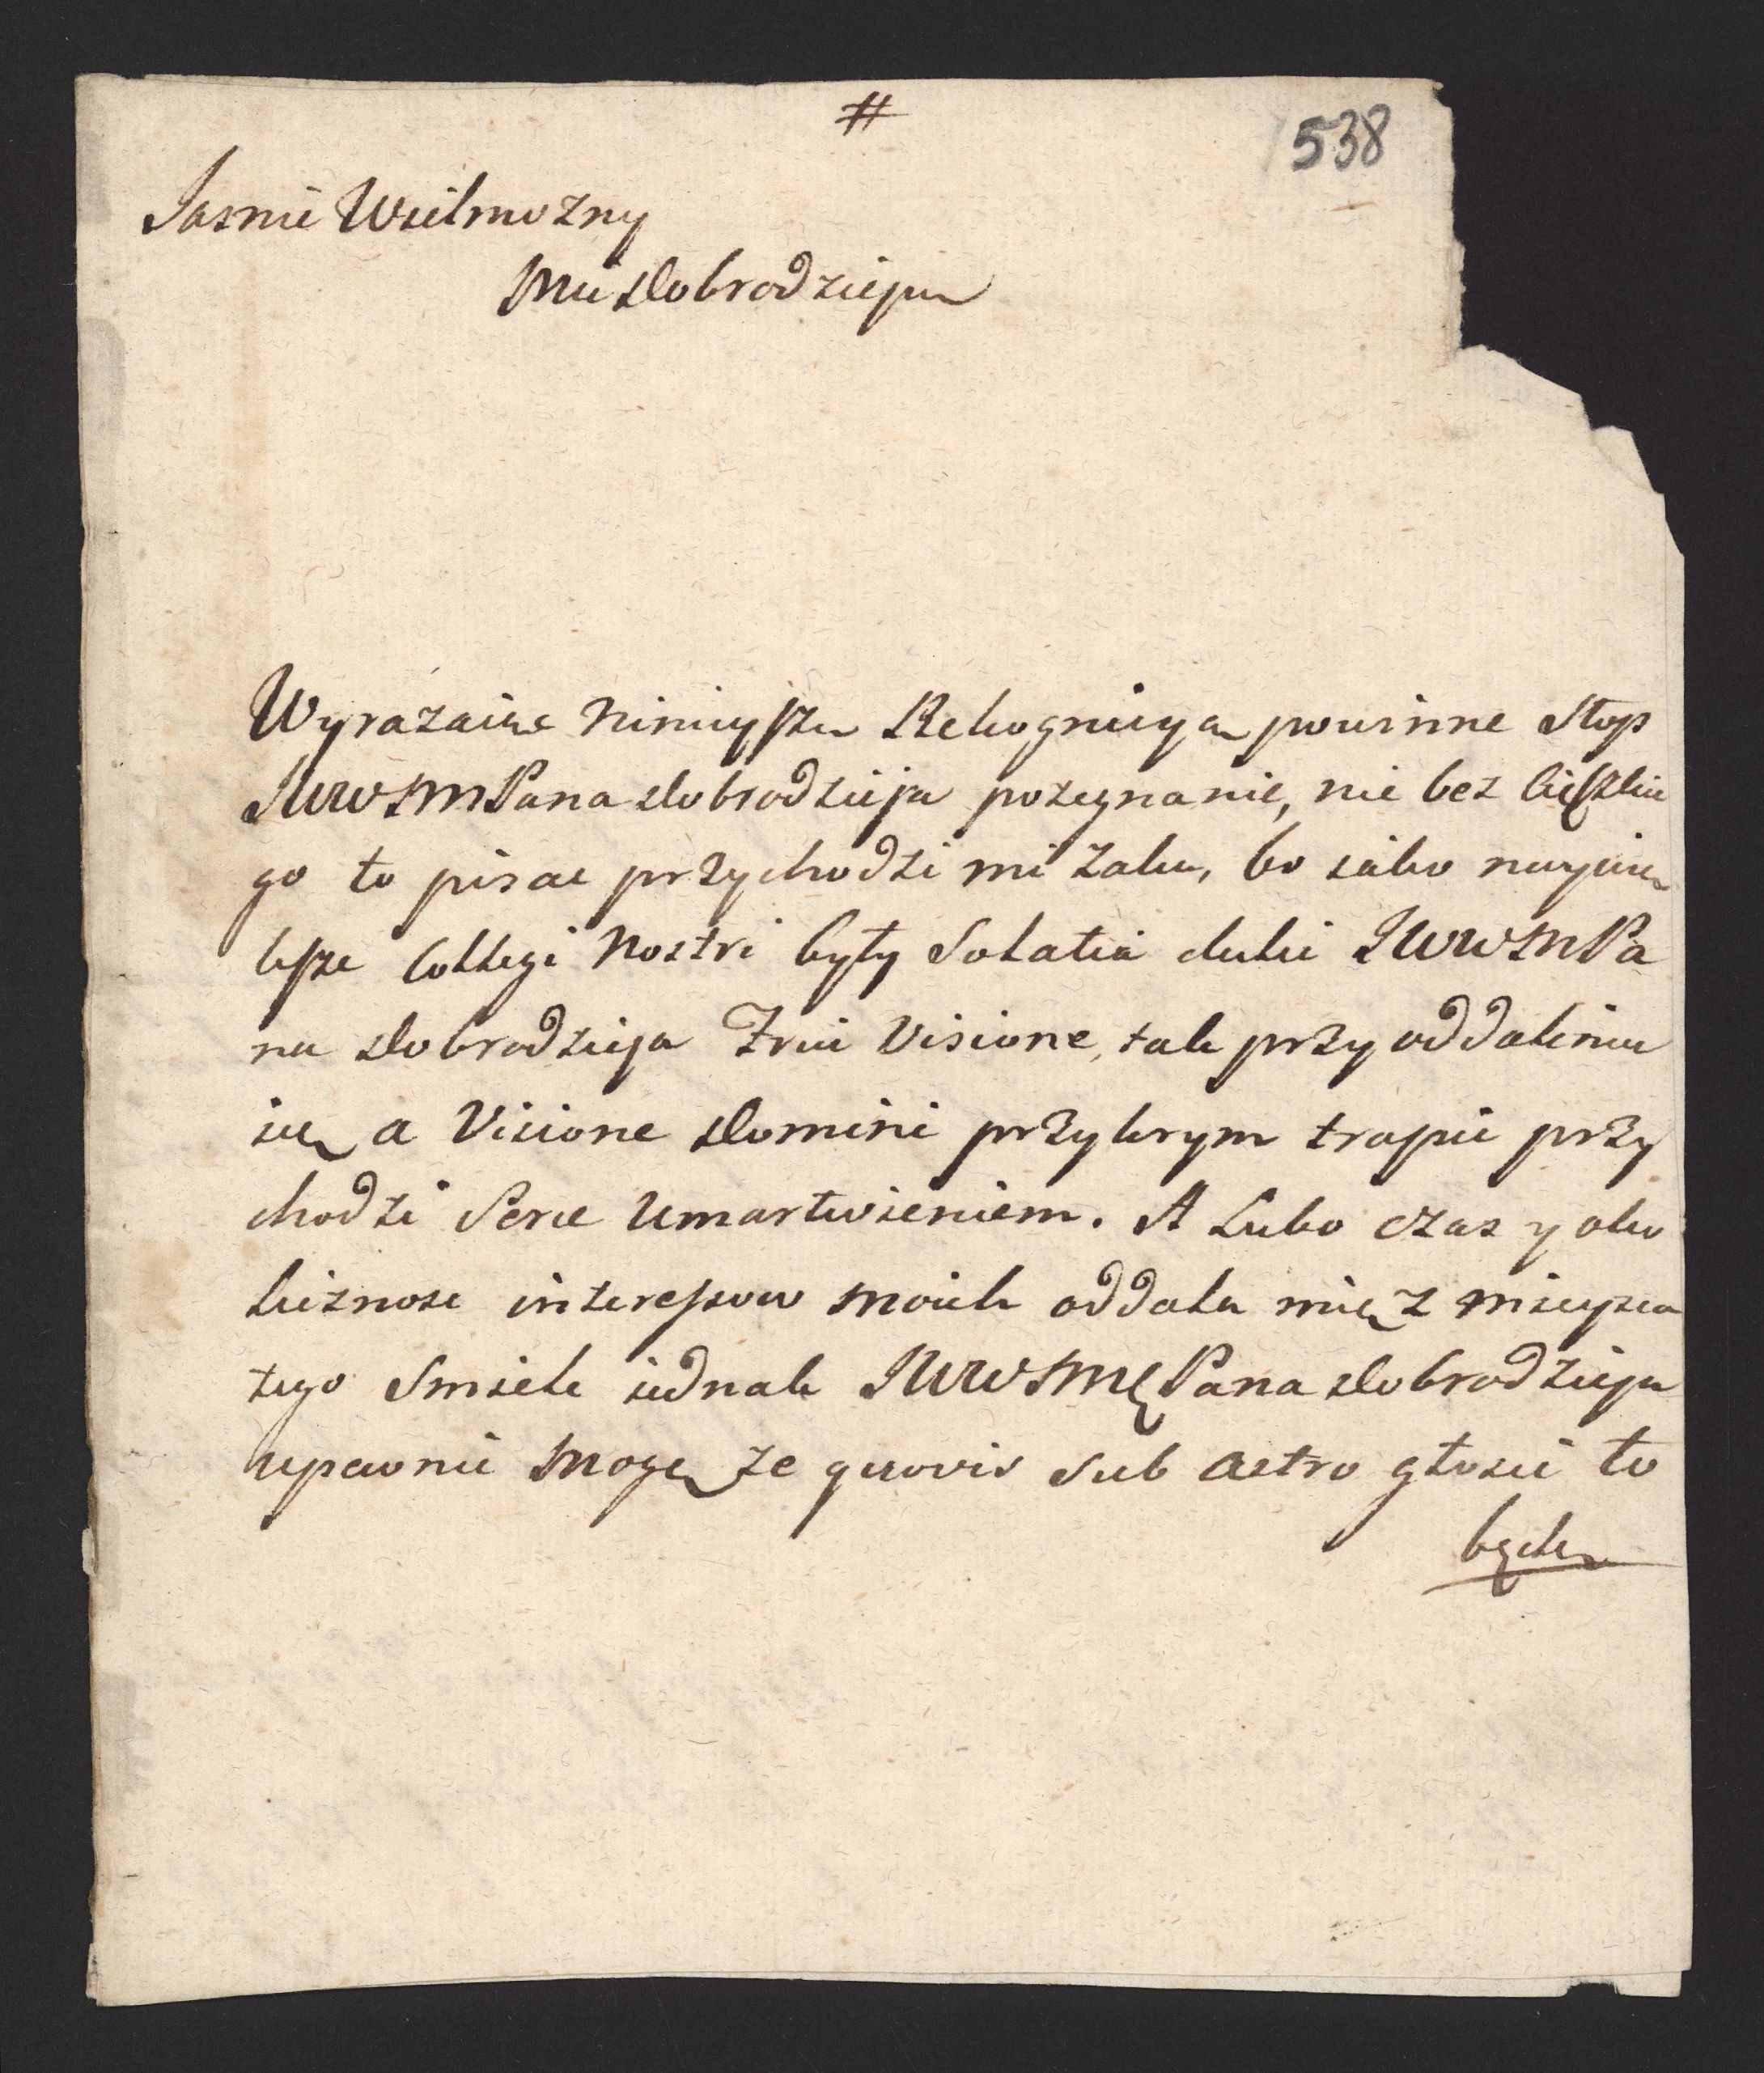 #
538
Jasnie Wielmozny
Mci Dobrodzieju
Wyrazaiąc ninieyszą Rekognicyą powinne Stop
JWWMPana Dobrodzieja pozegnanie, nie bez cięszkie
go to pisac przychodzi mi zalu, bo iako naywię
ksze Collegi Nostri były Solatia dulci JWWMPa
na Dobrodzieja Frui Visione, tak przy oddaleniu
się a Visione Domini przykrym trapic przy
chodzi Serce umartwieniem. A Lubo czas y oko
licznosc interessow moich oddala mię z mieysca
tego Smiele iednak JWWMęPana Dobrodzieja
upewnic mogę ze quovis Sub Astro głosic to
będę